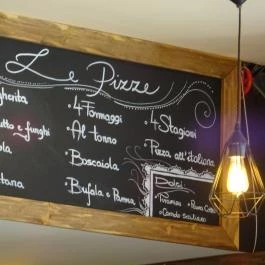 Le Pizze
gherita
tto e funghi
ola
tana
• 4 Formaggi
• Al tonno
• Boscaiola
• Bufala e Parma
• 4 Stagioni
• Pizza all'italiana
Dolci:
• Tiramisu
• Panna Cotta
• Cannolo siciliano